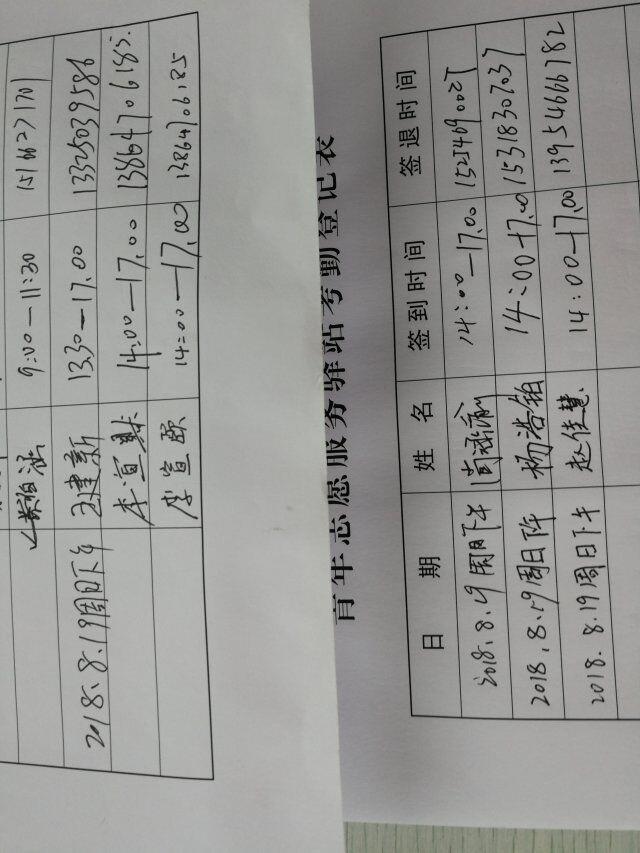 9:00—11:30 15166271701
王建新 13.30—17.00 13325039586
2018.8.19周日下午
李宣 14:00—17.00 13864706185
李宣颐 14:00—17.00 13864706185
青年志愿服务驿站考勤登记表
日 期 姓 名 签到时间 签退时间
2018.8.19周日下午 14:00—17.00 15254690027
2018.8.19周日下午 杨浩铂 14:00—17.00 15318307037
2018.8.19周日下午 赵佳慧 14:00—17.00 13954666782